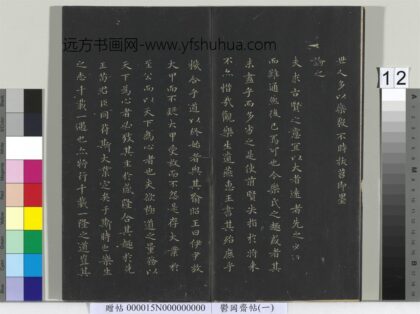 远方书画网-www.yfshuhua.com
世人多以樂毅不時拔莒即墨
論之
夫求古賢之意宜以大者遠者先之必迂
而難通然後已焉可也今樂氏之趣或者其
未盡乎而多劣之是使前賢失指於將來
不亦惜哉觀樂生遺燕惠王書其殆庶乎
機合乎道以終始者與其喻昭王曰伊尹放
大甲而不疑大甲受放而不怨是存大業於
至公而以天下為心者也夫欲極道之量務以
天下為心者必致其主於盛隆合其趣於先
王苟君臣同符斯大業定矣于斯時也樂生
之志千載一遇也亦將行千載一隆之道豈其
12
贈帖 000015N000000000
鬱岡齋帖(一)